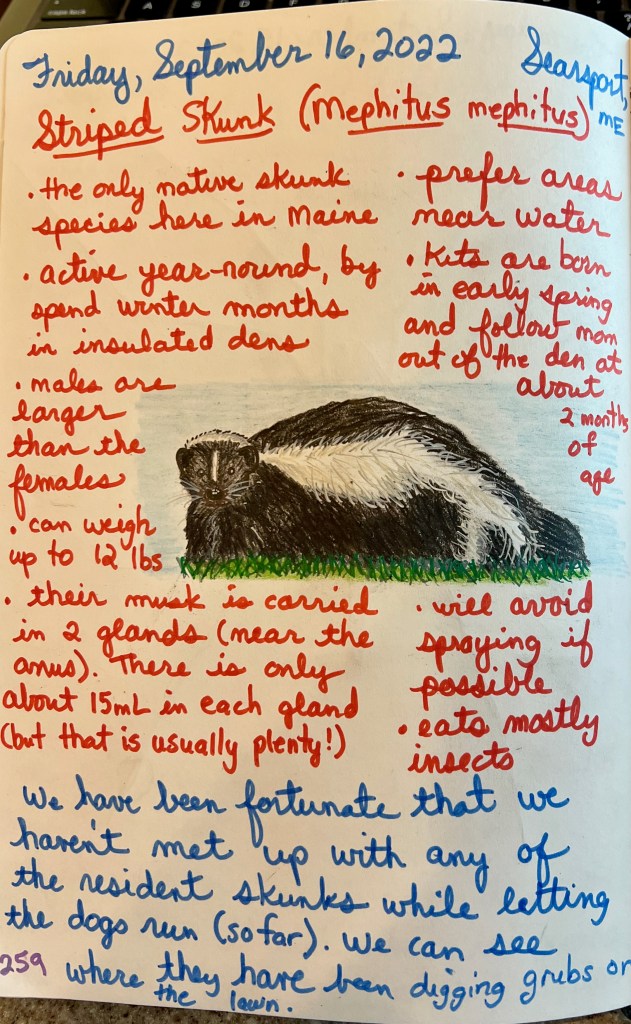 Friday, September 16, 2022
Searsport,
ME
Striped Skunk (Mephitus mephitus)
• the only native skunk
species here in Maine
• active year-round, by
spend winter months
in insulated dens
• males are
larger
than the
females
• can weigh
up to 12 lbs
• their musk is carried
in 2 glands (near the
anus). There is only
about 15mL in each gland
(but that is usually plenty!)
• prefer areas
near water
• Kits are born
in early spring
and follow mom
out of the den at
about
2 months
of
age
• will avoid
spraying if
possible
• eats mostly
insects
We have been fortunate that we
haven't met up with any of
the resident skunks while letting
the dogs run (so far). We can see
where they have been digging grubs on
the lawn.
259